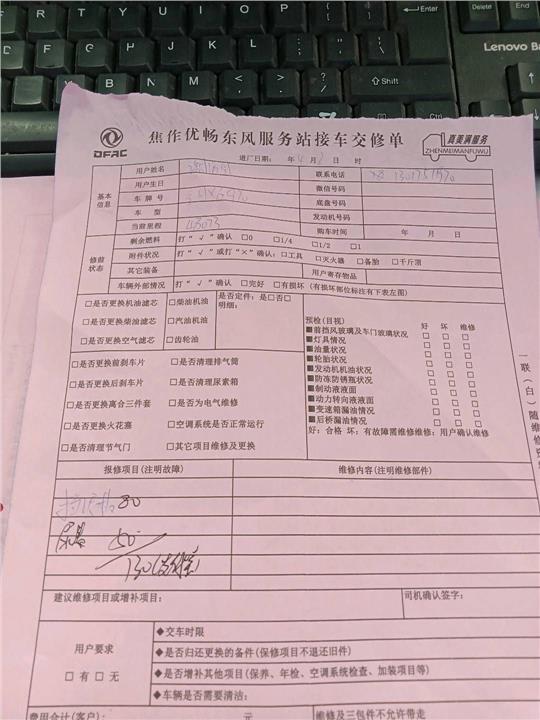 R T Y U I O P Enter Delete End
F G H J K L Lenovo
V B N M < > ? Shift
Alt Ctrl
DFAC
焦作优畅东风服务站接车交修单
真美满服务
ZHENMEIMANFUWU
进厂日期: 年 月 日 时
基本信息
用户姓名 联系电话
用户生日 微信号码
车牌号 底盘号码
车型 发动机号码
当前里程 48073 购车时间 年 月 日
修前状态
剩余燃料 打“√”确认 □0 □1/4 □1/2 □1
附件状况 打“√”或打“×”确认:□工具 □灭火器 □备胎 □千斤顶
其它装备 用户寄存物品
车辆外部情况 打“√”确认 □完好 □有损坏(有损坏部位标注有下表左图)
□是否更换机油滤芯 □柴油机油 是否定件:是□否□
明细:
□是否更换柴油滤芯 □汽油机油
□是否更换空气滤芯 □齿轮油
□是否更换前刹车片 □是否清理排气筒
□是否更换后刹车片 □是否清理尿素箱
□是否更换离合三件套 □是否为电气维修
□是否更换火花塞 □空调系统是否正常运行
□是否清理节气门 □其它项目维修及更换
预检(目视) 好 坏 维修
■前挡风玻璃及车门玻璃状况 □ □ □
■灯具情况 □ □ □
■油量状况 □ □ □
■轮胎状况 □ □ □
■发动机机油状况 □ □ □
■防冻防锈瓶状况 □ □ □
■制动液液面 □ □ □
■动力转向液液面 □ □ □
■变速箱漏油情况 □ □ □
■后桥漏油情况 □ □ □
好:合格 坏:有故障需维修维修:用户确认维修
一联(白)随维修
报修项目(注明故障) 维修内容(注明维修部件)
80
尿素 50
130
建议维修项目或增补项目: 司机确认签字:
用户要求
□有 □无
◆交车时限
◆是否归还更换的备件(保修项目不退还旧件)
◆是否增补其他项目(保养、年检、空调系统检查、加装项目等)
◆车辆是否需要清洁:
费用合计(客户): 元 维修及三包件不允许带走